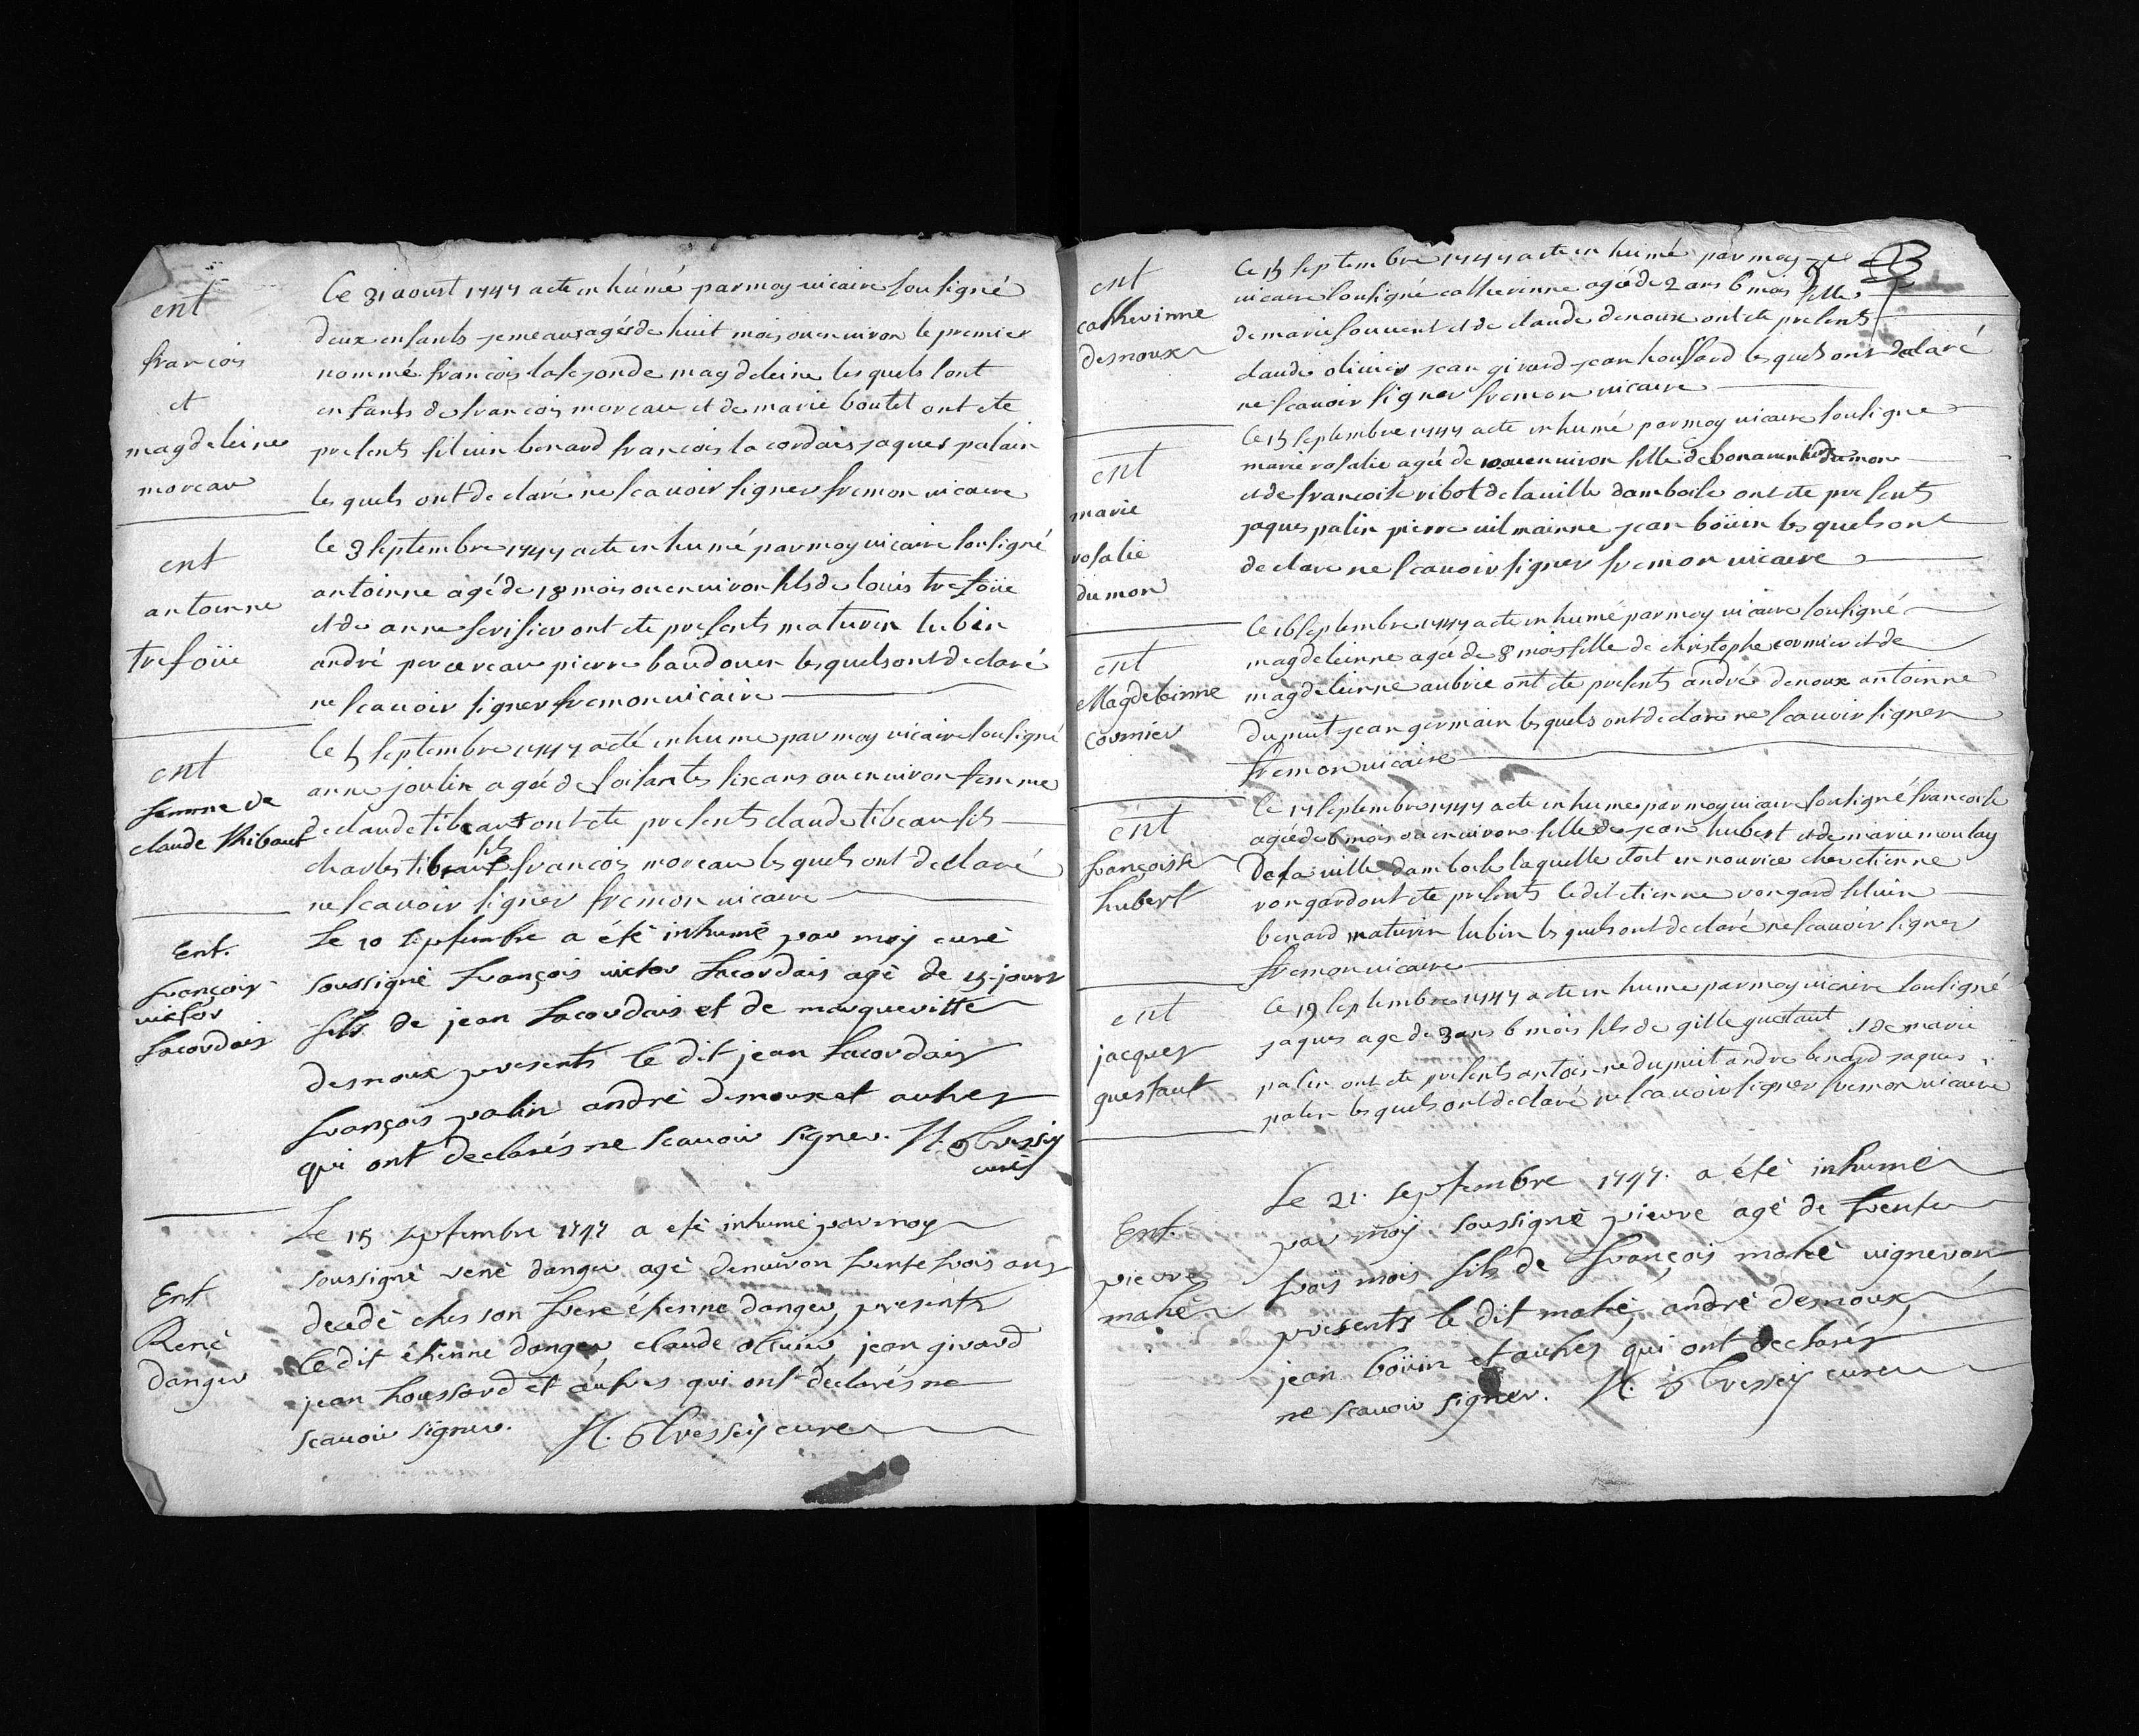 ent
françois
et
magdeleine
moreau
le 31 aoust 1747 a ete in humé par moy vicaire sousigné
deux enfants jemeaux agés de huit mois ou en viron le premier
nommé françois la segonde magdeleine les quels sont
enfants de françois moreau et de marie boutet ont ete
presents silvin benard françois la cordais jaques palain
les quels ont de claré ne scavoir signer fremon vicaire
ent
antoinne
trefoüe
le 3 septembre 1747 a ete in humé par moy vicaire sousigné
antoinne agé de 18 mois ou en viron fils de louis trefoüe
et de anne serisier ont ete presents maturin lubin
andré percereau pierre baudouen les quels ont de claré
ne scavoir signer fremon vicaire
ent
femme de
claude thibaut
le 5 septembre 1747 a eté in hume par moy vicaire sousigné
anne joulin agée de soisantes six ans ou en viron femme
de claude tibeaut ont ete presents claude tibeau fils
charles tibeaut fils françois moreau les quels ont de claré
ne scavoir signer fremon vicaire
Ent.
françois
victor
Lacordais
Le 10 septembre a été inhumé par moy curé
soussigné françois victor Lacordais agé de 15 jours
fils de jean Lacordais et de margueritte
desnoux presents le dit jean Lacordais
françois palin andré desnoux et autres
qui ont declarés ne scavoir signer.
curé
Ent
René
danger
Le 15 septembre 1747 a eté inhumé par moy
soussigné rené danger agé d'environ trente trois ans
decedé ches son frere étienne danger, presents
le dit étienne danger, claude ollivier, jean girard
jean houssard et autres qui ont declarés ne
scavoir signer. curé
ent
catherinne
desnoux
le 15 septembre 1747 a ete in humé par moy
vicaire sousigné catherinne agée de 2 ans 6 mois fille
de marie souvent et de claude denoux ont ete presents
claude olivier jean girard jean houssard les quels ont de claré
ne scavoir signer fremon vicaire
ent
marie
rosalie
dumon
le 15 septembre 1747 a ete in humé par moy vicaire sousigné
marie rosalie agée de ou en viron fille de bonaventure dumon
et de francoise ribot de la ville damboise ont ete presents
jaques palin pierre vilmainne jean boüin les quels ont
de clare ne scavoir signer fremon vicaire
ent
Magdeleinne
cormier
le 16 septembre 1747 a ete in humé par moy vicaire sousigné
magdeleinne agée de 8 mois fille de christophe cormier et de
magdeleinne aubrie ont ete presents andré denoux antoinne
dupuit jean germain les quels ont de clare ne scavoir signer
fremon vicaire
ent
françoise
hubert
le 17 septembre 1747 a ete in hume par moy vicaire sousigné francoise
agée de 6 mois ou en viron fille de jean hubert et de marie moulay
de la ville damboise laquelle etoit en nourice ches etienne
rongard ont ete presents le dit etienne rongard silvin
benard maturin lubin les quels ont de claré ne scavoir signer
fremon vicaire
ent
jacques
questaut
le 19 septembre 1747 a ete in hume par moy vicaire sousigné
jaques age de 3 ans 6 mois fils de gille quetaut et de marie
palin ont ete presents antoinne dupuit andre benard jaques
palin les quels ont de claré ne scavoir signer fremon vicaire
Ent.
pierre
mahé
Le 21. septembre 1747. a été inhumé
par moy soussigné pierre agé de trente
trois mois fils de françois mahé vigneron
presents le dit mahé, andré desnoux,
jean boüin et autres qui ont declarés
ne scavoir signer. curé